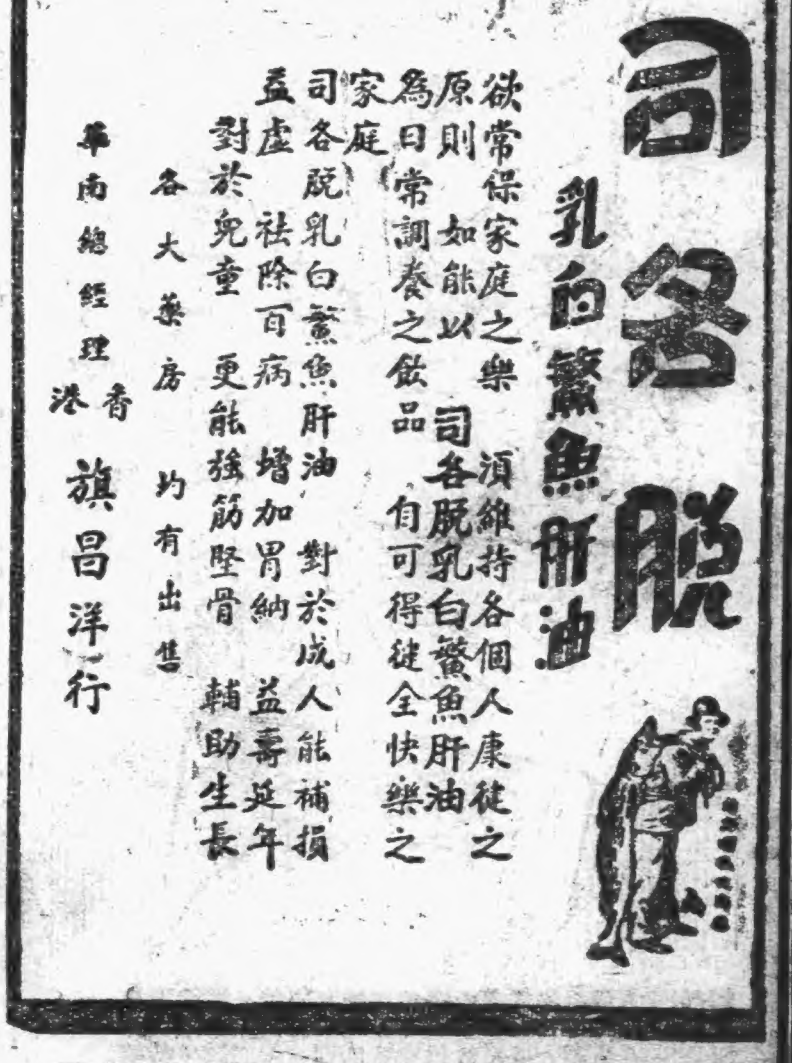 司各脫
乳白鰵魚肝油
欲常保家庭之樂　須維持各個人康健之
原則　如能以　司各脫乳白鰵魚肝油
為日常調養之飲品　自可得健全快樂之
家庭
司各脫乳白鰵魚肝油　對於成人能補損
益虛　祛除百病　增加胃納　益壽延年
對於兒童　更能強筋堅骨　輔助生長
各大藥房　均有出售
華南總經理
香港
旗昌洋行